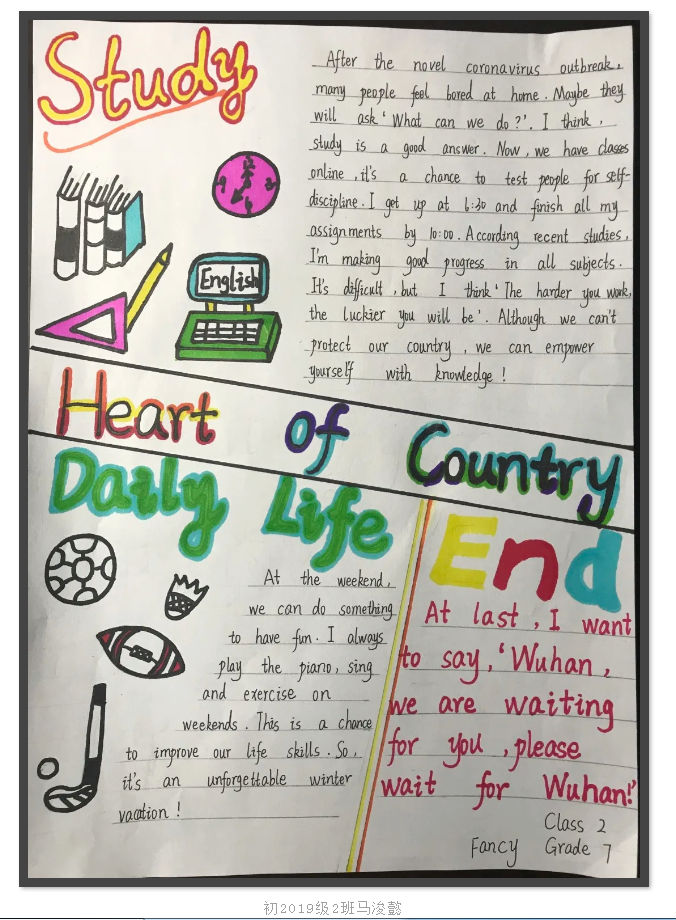 Study
After the novel coronavirus outbreak,
many people feel bored at home. Maybe they
will ask 'What can we do?'. I think,
study is a good answer. Now, we have classes
online, it's a chance to test people for self-
discipline. I get up at 6:30 and finish all my
assignments by 10:00. According recent studies,
I'm making good progress in all subjects.
It's difficult, but I think 'The harder you work,
the luckier you will be'. Although we can't
protect our country, we can empower
yourself with knowledge!
English
Heart of Country
Daily Life
At the weekend,
we can do something
to have fun. I always
play the piano, sing
and exercise on
weekends. This is a chance
to improve our life skills. So,
it's an unforgettable winter
vacation!
End
At last, I want
to say, 'Wuhan,
we are waiting
for you, please
wait for Wuhan!'
Class 2
Fancy Grade 7
初2019级2班马浚懿